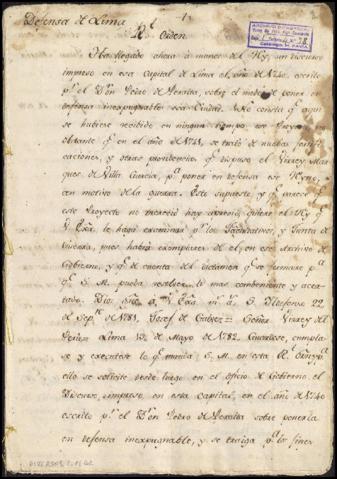 Defensa de Lima
Rl. Orden
Ha llegado ahora à manos del Rey, un discurso
impreso en esa Capital de Lima el año de 1740, escrito
pr. el Dn. Pedro de Peralta, sobre el modo de poner en
defensa inexpugnable esa Ciudad. No consta q. aqui
se hubiese recibido en ningun tiempo este Proyecto
obstante qe. en el año de 1741, se trató de nuevas fortifi
caciones, y otras providencias qe. dispuso el Virrey Mar
ques de Villa Garcia, pa. poner en defensa ese Reyno,
con motivo de la guerra. Este supuesto, y qe. parece
este Proyecto no mereció hay aprecio, quiere el Rey qe.
V. Exa. le haga examinar pr. los Facultativos, y Junta de
Guerra, pues habrá exemplares de el, en ese Archivo de
Gobierno, y qe. dé cuenta del dictamen qe. se formare pa.
qe. S. M. pueda resolver lo mas combeniente y acer
tado. Dios gue. à V. Exa. ms. as. Sn. Ildefonso 22
de Sepre. de 1781. Josef de Galvez = Señor Virrey del
Perú = Lima 13 de Mayo de 1782. Guardese, cumpla
se y executese lo qe. manda S. M. en esta Rl.
ello se solicite desde luego en el oficio de Gobierno el
Discurso, impreso en esta Capital, en el año de 1740
escrito pr. el Dn. Pedro de Peralta sobre ponerla
en defensa inexpugnable, y se traiga pa. los fines